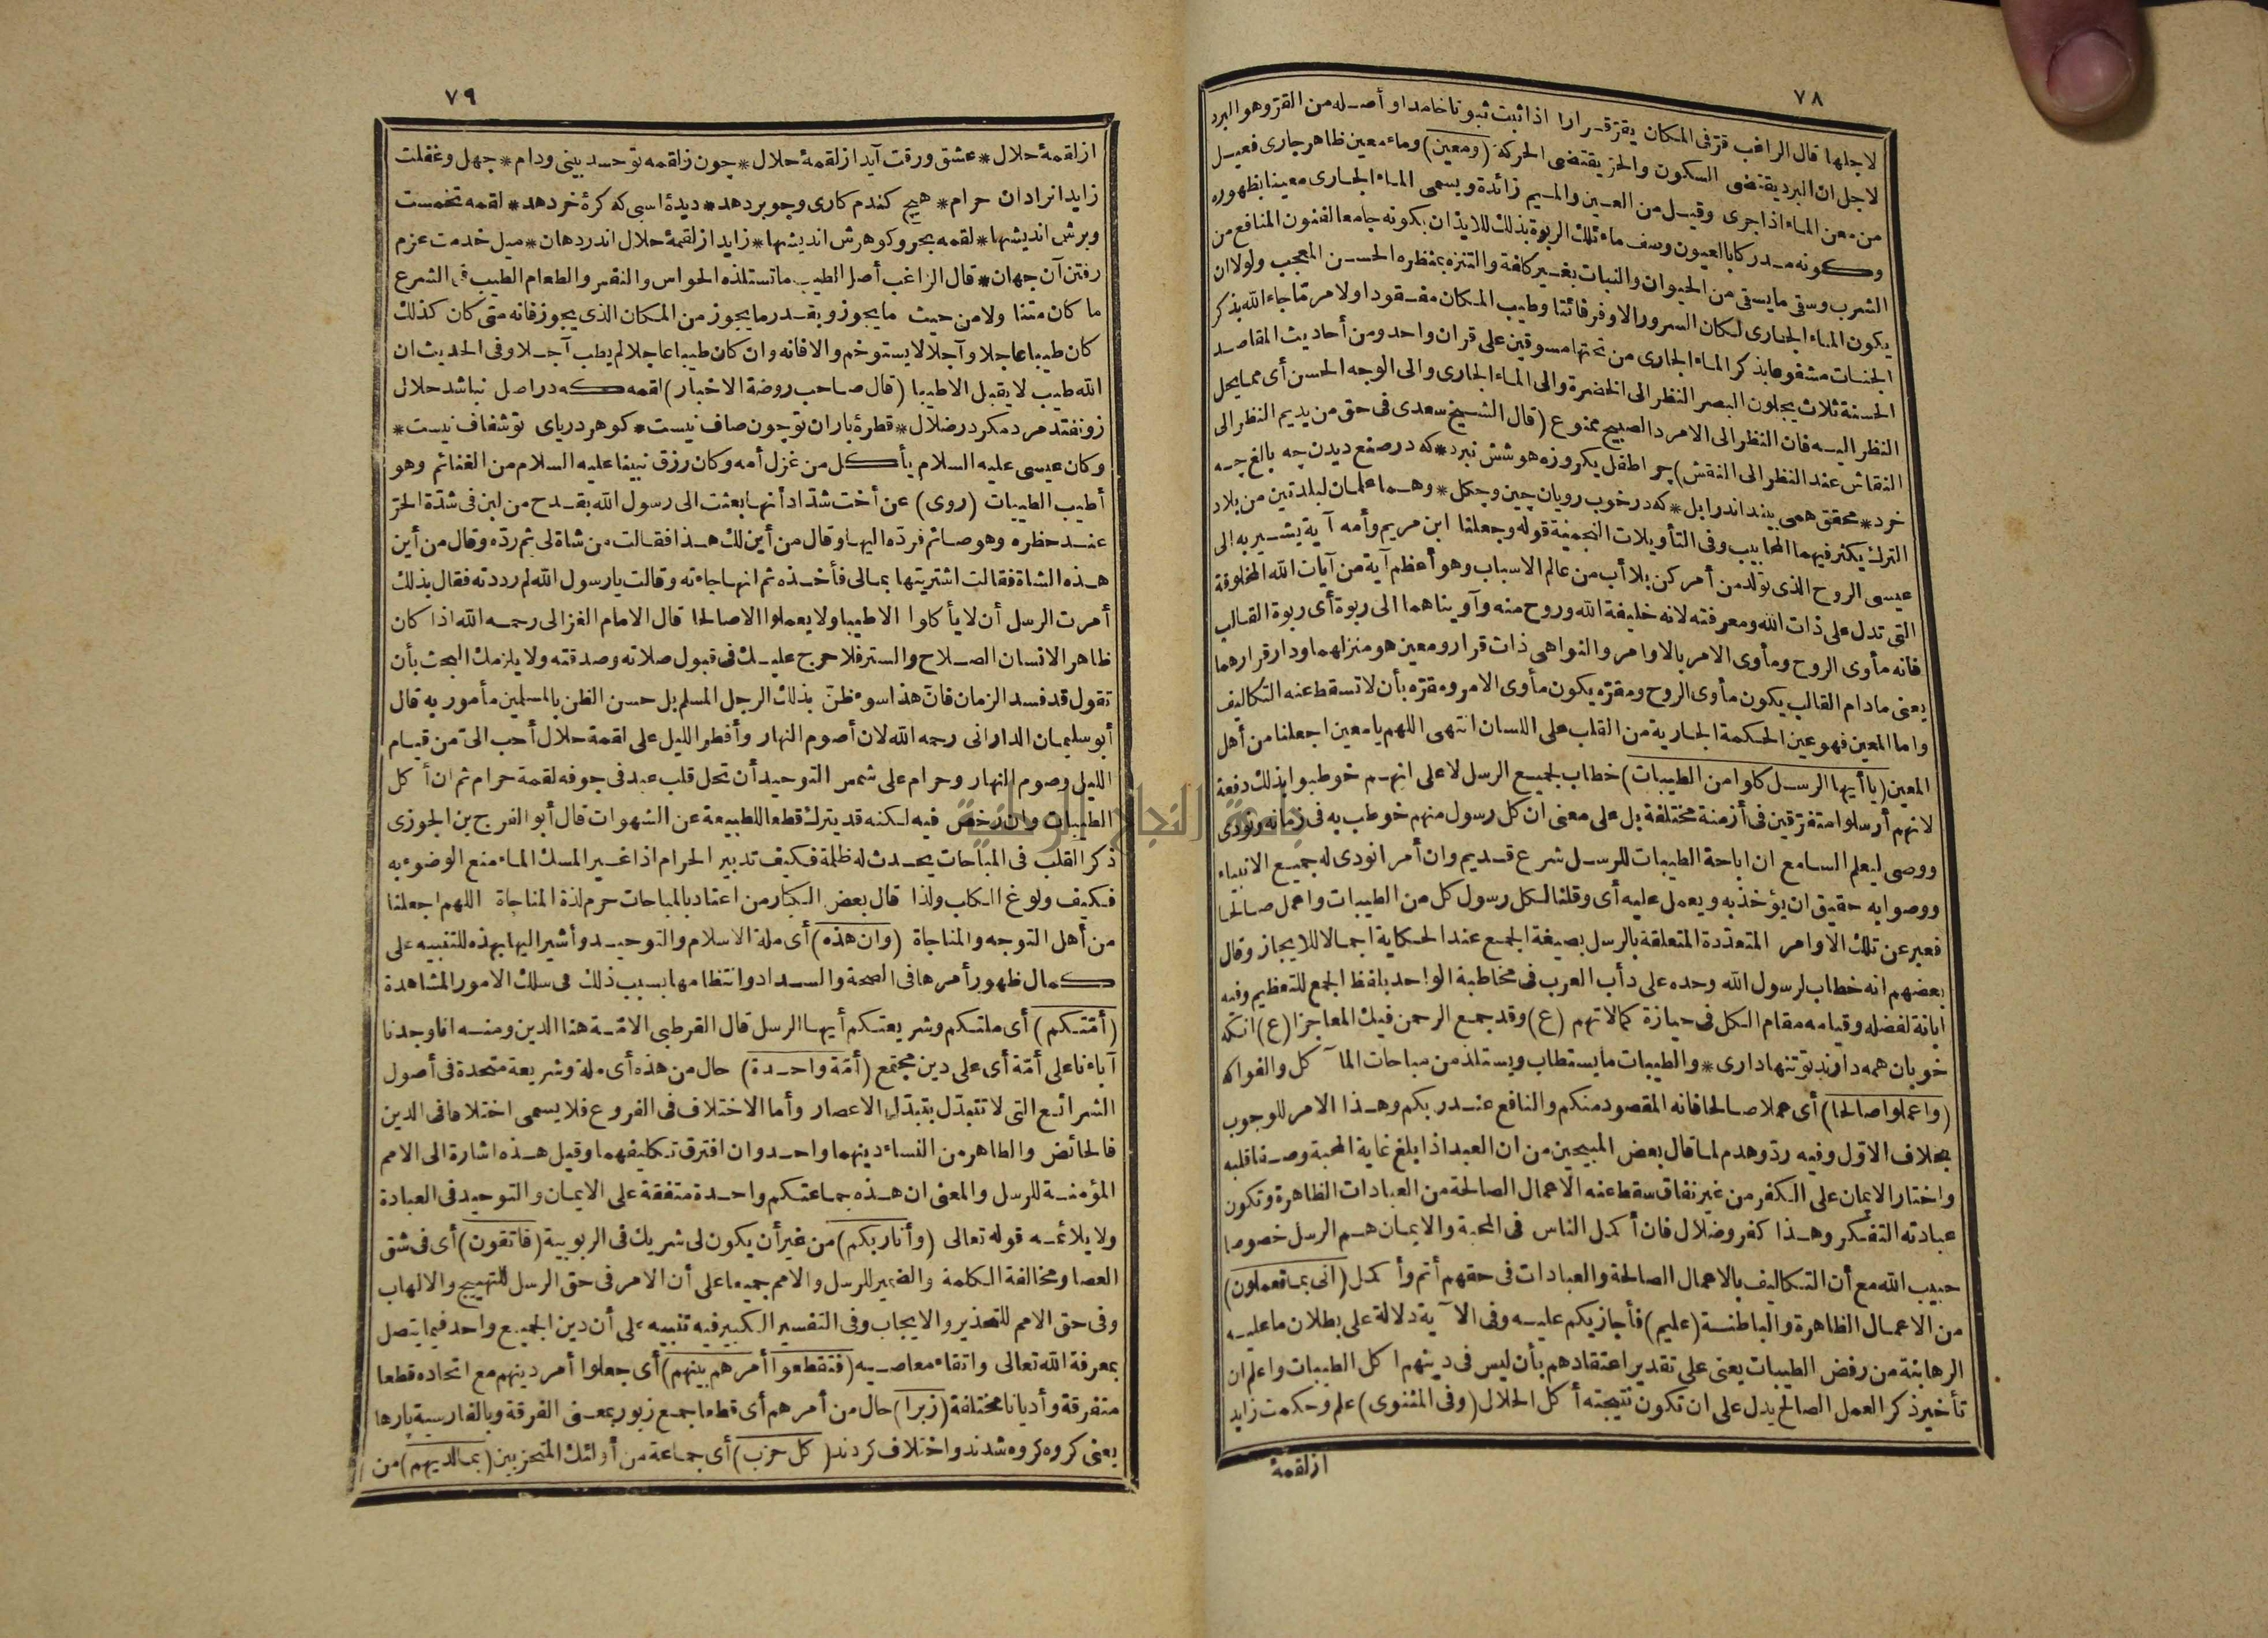 ٧٨
لاجلها قال الراغب قرّ فى المكان يقرّ قرارا اذا ثبت ثبوتا خامدا وأصله من القرّ وهو البرد
لاجل ان البرد يقتضى السكون والحرّ يقتضى الحركة (ومعين) وماء معين ظاهر جارى فعيل
من معن الماء اذا جرى وقيل من العين والميم زائدة ويسمى الماء الجارى معينا بظهوره
وكونه مدركا بالعيون وصف ماء تلك الربوة بذلك للايذان بكونه جامعا لفنون المنافع من
الشرب وسقى ما يسقى من الحيوان والنبات بغير كلفة والتنزه بمنظره الحسن المعجب ولولا ان
يكون الماء الجارى لكان السرور الاوفر فائتا وطيب المكان مفقودا ولامر تما جاء الله بذكر
الجنات مشفوعا بذكر الماء الجارى من تحتها مسوقين على قران واحد ومن أحاديث المقاصد
الحسنة ثلاث يجلون البصر النظر الى الخضرة والى الماء الجارى والى الوجه الحسن أى مما يحل
النظر اليه فان النظر الى الامرد الصبيح ممنوع (قال الشيخ سعدى فى حق من يديم النظر الى
النقاش عند النظر الى النقش) چرا طفل يكروزه هوشش نبرد* كه در صنع ديدن چه بالغ چه
خرد* محقق همى بيند اندر ابل* كه در خوب رويان چين وچكل* وهما علمان لبلدتين من بلاد
الترك يكثر فيهما المحابيب وفى التأويلات النجمية قوله وجعلنا ابن مريم وأمه آية يشير به الى
عيسى الروح الذى تولد من أمر كن بلا أب من عالم الاسباب وهو أعظم آية من آيات الله المخلوقة
التى تدل على ذات الله ومعرفته لانه خليفة الله وروح منه وآويناهما الى ربوة أى ربوة القالب
فانه مأوى الروح ومأوى الامر بالاوامر والنواهى ذات قرار ومعين هو منزلهما ودار قرارهما
يعنى مادام القالب يكون مأوى الروح ومقرّه يكون مأوى الامر ومقرّه بأن لا تسقط عنه التكاليف
واما المعين فهو عين الحكمة الجارية من القلب على اللسان انتهى اللهم يا معين اجعلنا من أهل
المعين (يا أيها الرسل كلوا من الطيبات) خطاب لجميع الرسل لا على انهم خوطبوا بذلك دفعة
لانهم أرسلوا متفرّقين فى أزمنة مختلفة بل على معنى ان كل رسول منهم خوطب به فى زمانه ونودى
ووصى ليعلم السامع ان اباحة الطيبات للرسل شرع قديم وان أمرا نودى له جميع الانبياء
ووصوا به حقيق ان يؤخذ به ويعمل عليه أى وقلنا لكل رسول كل من الطيبات واعمل صالحا
فعبر عن تلك الاوامر المتعدّدة المتعلقة بالرسل بصيغة الجمع عند الحكاية اجمالا للايجاز وقال
بعضهم انه خطاب لرسول الله وحده على دأب العرب فى مخاطبة الواحد بلفظ الجمع للتعظيم وفيه
ابانة لفضله وقيامه مقام الكل فى حيازة كمالاتهم (ع) وقد جمع الرحمن فيك المعاجزا (ع) انكه
خوبان همه دارند تو تنها دارى* والطيبات ما يستطاب ويستلذ من مباحات المآكل والفواكه
(واعملوا صالحا) أى عملا صالحا فانه المقصود منكم والنافع عند ربكم وهذا الامر للوجوب
بخلاف الاوّل وفيه ردّ وهدم لما قال بعض المبيحين من ان العبد اذا بلغ غاية المحبة وصفا قلبه
واختار الايمان على الكفر من غير نفاق سقط عنه الاعمال الصالحة من العبادات الظاهرة وتكون
عبادته التفكر وهذا كفر وضلال فان أكمل الناس فى المحبة والايمان هم الرسل خصوصا
حبيب الله مع أن التكاليف بالاعمال الصالحة والعبادات فى حقهم أتم وأكمل (انى بما تعملون)
من الاعمال الظاهرة والباطنة (عليم) فأجازيكم عليه وفى الآية دلالة على بطلان ما عليه
الرهابنة من رفض الطيبات يعنى على تقدير اعتقادهم بأن ليس فى دينهم اكل الطيبات واعلم ان
تأخير ذكر العمل الصالح يدل على ان تكون نتيجته أكل الحلال (وفى المثنوى) علم وحكمت زايد
ازلقمهٔ
٧٩
ازلقمهٔ حلال* عشق ورقت آيد ازلقمهٔ حلال* چون زلقمه تو حسد بينى ودام* جهل وغفلت
زايد انرادان حرام* هيچ كندم كارى وجو بردهد* ديدهٔ اسبى كه كرهٔ خر دهد* لقمه تخمست
وبرش انديشها* لقمه بحر وكوهرش انديشها* زايد ازلقمهٔ حلال اندر دهان* ميل خدمت عزم
رفتن آن جهان* قال الراغب أصل الطيب ما تستلذه الحواس والنفس والطعام الطيب فى الشرع
ما كان متنا ولا من حيث ما يجوز وبقدر ما يجوز من المكان الذى يجوز فانه متى كان كذلك
كان طيبا عاجلا وآجلا لا يستوخم والا فانه وان كان طيبا عاجلا لم يطب آجلا وفى الحديث ان
الله طيب لا يقبل الا طيبا (قال صاحب روضة الاخبار) لقمه كه دراصل نباشد حلال
زو نفتد مرد مكر در ضلال* قطرهٔ باران تو چون صاف نيست* كوهر درياى تو شفاف نيست*
وكان عيسى عليه السلام يأكل من غزل أمه وكان رزق نبينا عليه السلام من الغنائم وهو
أطيب الطيبات (روى) عن أخت شدّاد أنها بعثت الى رسول الله بقدح من لبن فى شدّة الحرّ
عند حظره وهو صائم فردّه اليها وقال من أين لك هذا فقالت من شاة لى ثم ردّه وقال من أين
هذه الشاة فقالت اشتريتها بمالى فأخذه ثم انها جاءته وقالت يا رسول الله لم رددته فقال بذلك
أمرت الرسل أن لا يأكلوا الا طيبا ولا يعملوا الا صالحا قال الامام الغزالى رحمه الله اذا كان
ظاهر الانسان الصلاح والستر فلا حرج عليك فى قبول صلاته وصدقته ولا يلزمك البحث بأن
تقول قد فسد الزمان فانّ هذا سوء ظنّ بذلك الرجل المسلم بل حسن الظن بالمسلمين مأمور به قال
أبو سليمان الدارانى رحمه الله لان أصوم النهار وأفطر الليل على لقمة حلال أحب الىّ من قيام
الليل وصوم النهار وحرام على شمس التوحيد أن تحل قلب عبد فى جوفه لقمة حرام ثم ان أكل
الطيبات وان رخص فيه لكنه قد يترك قطعا للطبيعة عن الشهوات قال أبو الفرج بن الجوزى
ذكر القلب فى المباحات يحدث له ظلمة فكيف تدبير الحرام اذا غير المسك الماء منع الوضوء به
فكيف ولوغ الكلب ولذا قال بعض الكبار من اعتاد بالمباحات حرم لذة المناجاة اللهم اجعلنا
من أهل التوجه والمناجاة (وان هذه) أى ملة الاسلام والتوحيد وأشير اليها بهذه للتنبيه على
كمال ظهور أمرها فى الصحة والسداد وانتظامها بسبب ذلك فى سلك الامور المشاهدة
(أمّتكم) أى ملتكم وشريعتكم أيها الرسل قال القرطبى الامّة هنا الدين ومنه انا وجدنا
آباءنا على أمّة أى على دين مجتمع (أمّة واحدة) حال من هذه أى ملة وشريعة متحدة فى أصول
الشرائع التى لا تتبدّل بتبدّل الاعصار وأما الاختلاف فى الفروع فلا يسمى اختلافا فى الدين
فالحائض والطاهر من النساء دينهما واحد وان افترق تكليفهما وقيل هذه اشارة الى الامم
المؤمنة للرسل والمعنى ان هذه جماعتكم واحدة متفقة على الايمان والتوحيد فى العبادة
ولا يلائمه قوله تعالى (وأنا ربكم) من غير أن يكون لى شريك فى الربوبية (فاتقون) أى فى شق
العصا ومخالفة الكلمة والضمير للرسل والامم جميعا على أن الامر فى حق الرسل للتهييج والالهاب
وفى حق الامم للتحذير والايجاب وفى التفسير الكبير فيه تنبيه على أن دين الجميع واحد فيما يتصل
بمعرفة الله تعالى واتقاء معاصيه (فتقطعوا أمرهم بينهم) أى جعلوا أمر دينهم مع اتحاده قطعا
متفرقة وأديانا مختلفة (زبرا) حال من أمرهم أى قطعا جمع زبور بمعنى الفرقة وبالفارسية پارها
يعنى كروه كروه شدند واختلاف كردند (كل حزب) أى جماعة من أولئك المتحزبين (بما لديهم) من